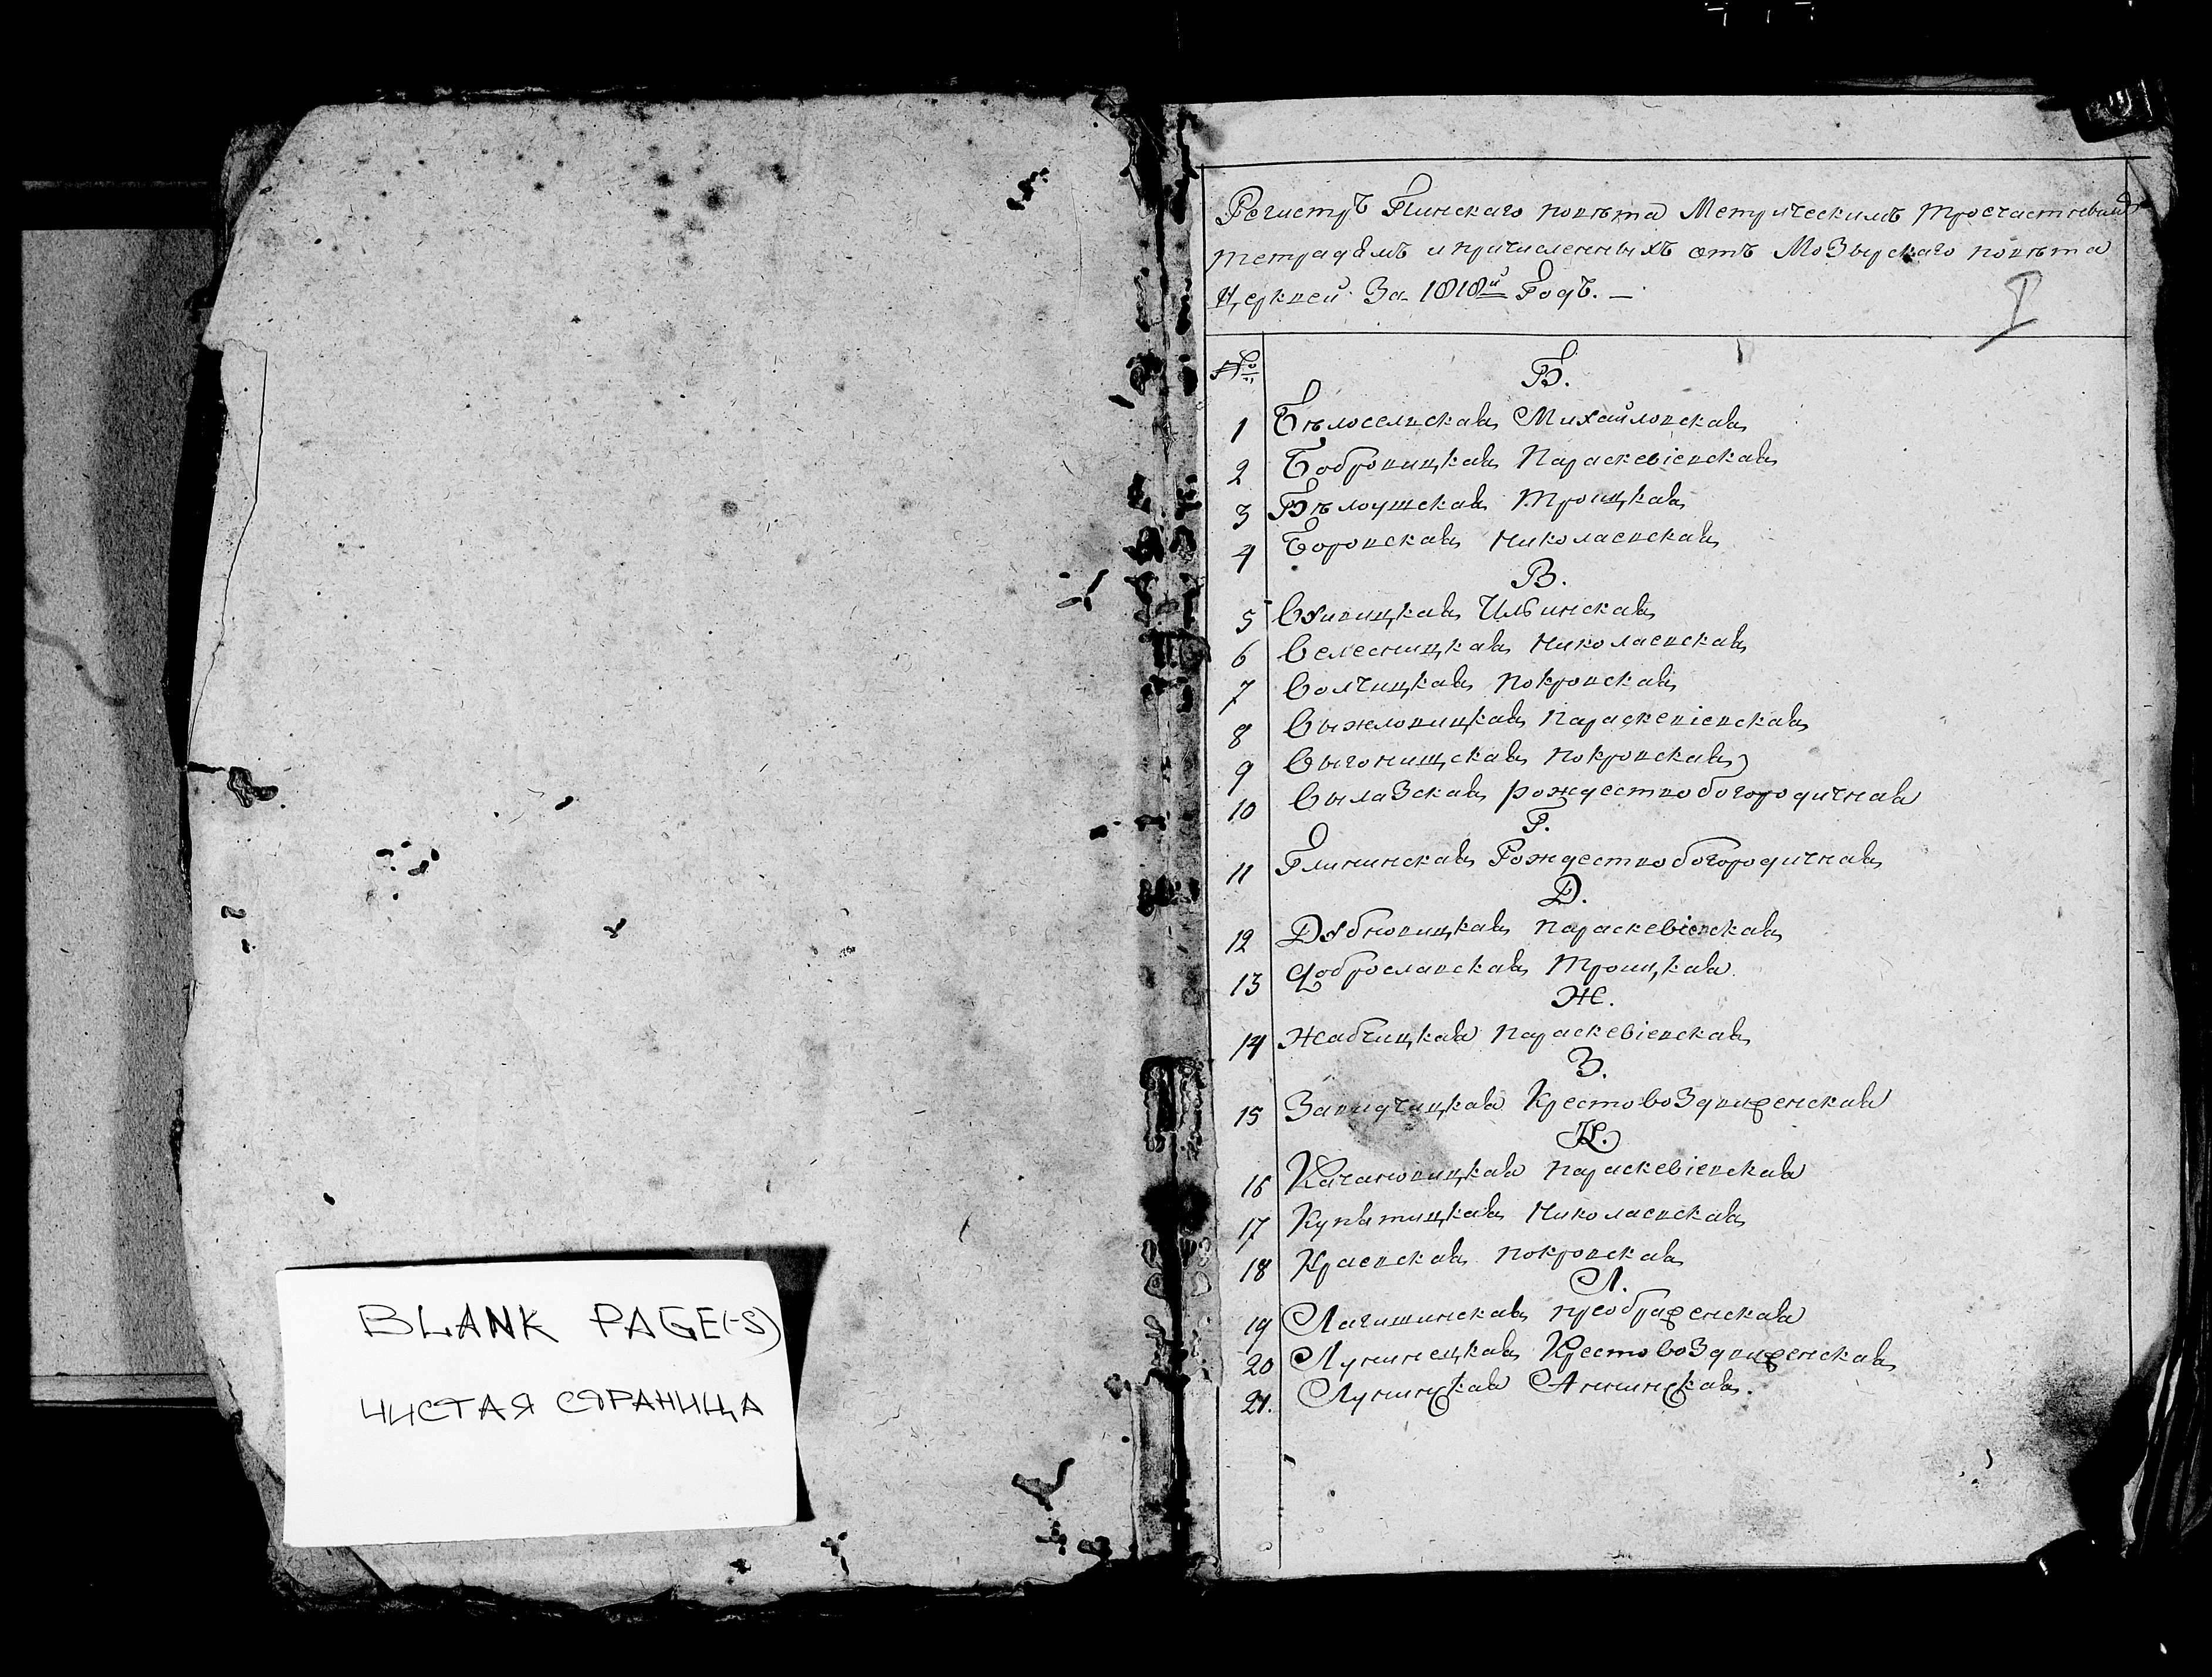 BLANK PAGE(-S)
ЧИСТАЯ СТРАНИЦА
Регистръ Пинскаго повѣта Метрическимъ троечастневымъ
тетрадямъ и причисленныхъ отъ Мозырскаго повѣта
Церквей За 1818й Годъ. —
I
№
Б.
1 Бѣлоселвская Михайловская
2 Бобровицкая Параскевіевская
3 Бѣлоушская Троицкая
4 Боровская Николаевская
В.
5 Вуивицкая Ильинская
6 Велесницкая Николаевская
7 Волчицкая Покровская
8 Выжловицкая Параскевіевская
9 Выгонищская Покровская
10 Вылазская рождествобогородичная
Г.
11 Глининская Рождествобогородичная
Д.
12 Дубновицкая Параскевіевская
13 Доброславская Троицкая
Ж.
14 Жабчицкая Параскевіевская
З.
15 Завидчицкая Крестовоздвиженская
К.
16 Качановицкая Параскевіевская
17 Купятицкая Николаевская
18 Краевская Покровская
Л.
19 Лагишинская преображенская
20 Лунинецкая Крестовоздвиженская
21. Лунинская Аннинская.